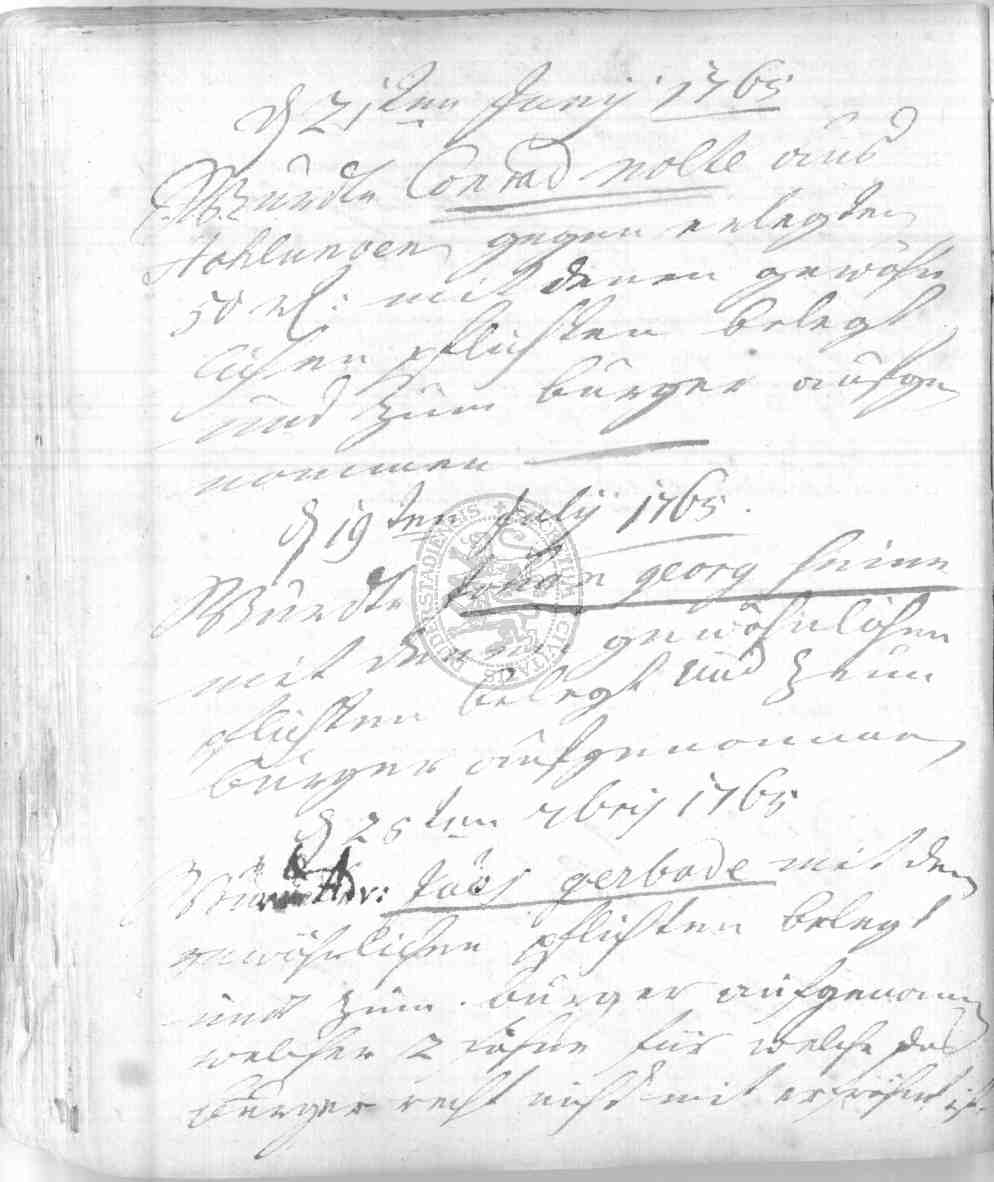 d 21ten Junij 1765
Wurdte Conrad Nolte aus
gegen erlegten
50 rl: mit denen gewöhn
lichen pflichten belegt
und zum bürger aufge
nommen
d 19ten Julij 1765.
Wurdte Johan georg heine
mit denen gewöhnlichen
pflichten belegt und zum
bürger aufgenommen
ten 7brij 1765
gerbode mit den
gewöhnlichen pflichten belegt
und zum bürger aufgenomm
welcher 2 söhne für welche das
Bürger recht nicht mit
SIGILLUM CIVITATIS DUDERSTADIENSIS